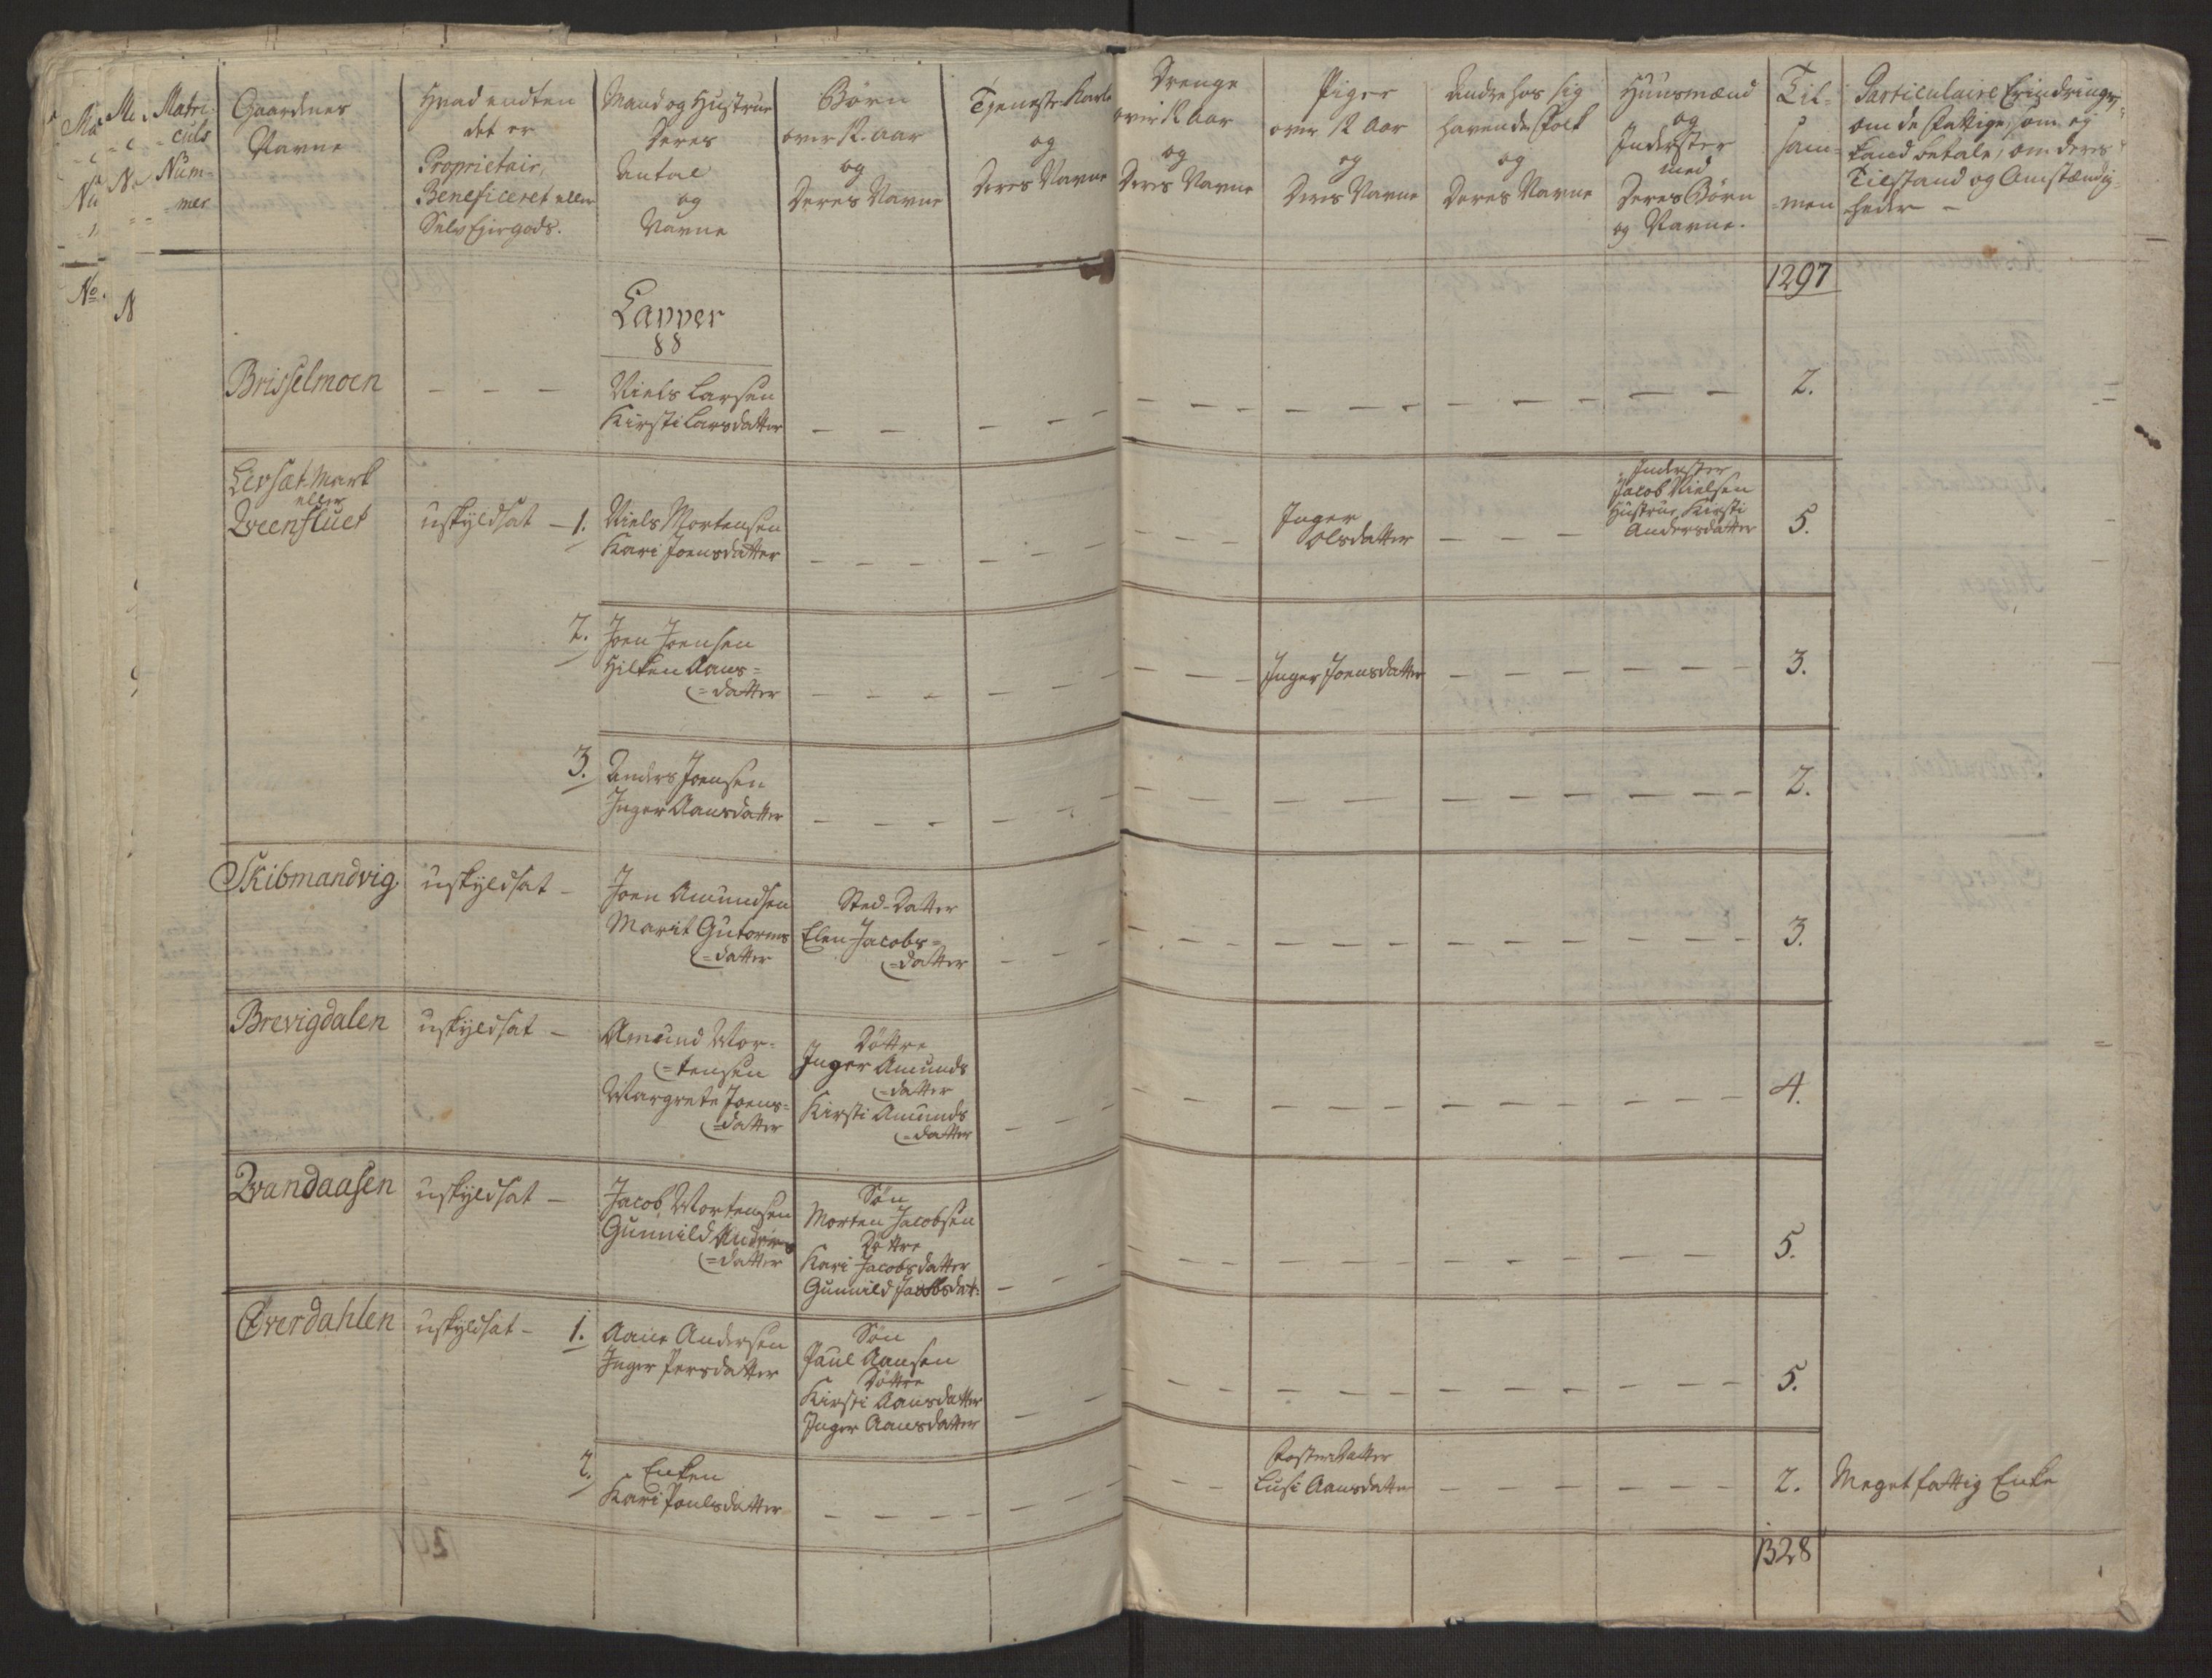 Matri-
culs
Num-
mer
Gaardenes
Navne
Hvad endten
det er
Proprietair,
Beneficeret eller
Selv Ejergods.
Mand og Hustrue
Deres
Antal
og
Navne
Børn
over 12. aar
og
Deres Navne
Tjeneste-Karle
og
Deres Navne
Drenge
over 12 Aar
og
Deres Navne
Piger
over 12 Aar
og
Deres Navne
Andre hos sig
havende Folk
og
Deres Navne
Huusmænd
og
Inderster
med
Deres Børn
og Navne.
Til-
sam-
men
Particulaire Erindringer
om de fattige, som ej
kand betale, om deres
Tilstand og Omstændig-
heder -
No.
N
1297
Lapper
88
Brisselmoen - - - Niels Larsen 2.
Kirsti Larsdatter
Lersat-Mark
eller
Qveenfluet uskyldsat - 1. Niels Mortensen
Kari Joensdatter
Inger
Olsdatter
Inderster
Jacob Nielsen
Hustrue Kirsti
Andersdatter
5.
2. Joen Joensen
Hilken Aans=
=datter
Inger Joensdatter 3.
3. Anders Joensen
Inger Aansdatter 2.
Skibmandvig uskyldsat - Joen Amundsen
Marit Gutorms
=datter
Sted-Datter
Elen Jacobs=
=datter
3.
Brevigdalen uskyldsat - Amund Mor-
=tensen
Margrete Joens=
=datter
Døttre
Inger Amunds
=datter
Kirsti Amunds
=datter
4.
Qvandaasen uskyldsat - Jacob Mortensen
Gunnild Anders
=datter
Søn
Morten Jacobsen
Døttre
Kari Jacobsdatter
Gunnild Jacobsdat:
5.
Øverdahlen uskyldsat - 1. Aane Andersen
Inger Persdatter
Søn
Paul Aansen
Døttre
Kirsti Aansdatter
Inger Aansdatter
5.
2. Enken
Kari Poulsdatter
Foster Datter
Lusi Aansdatter
2. Meget fattig Enke
1328